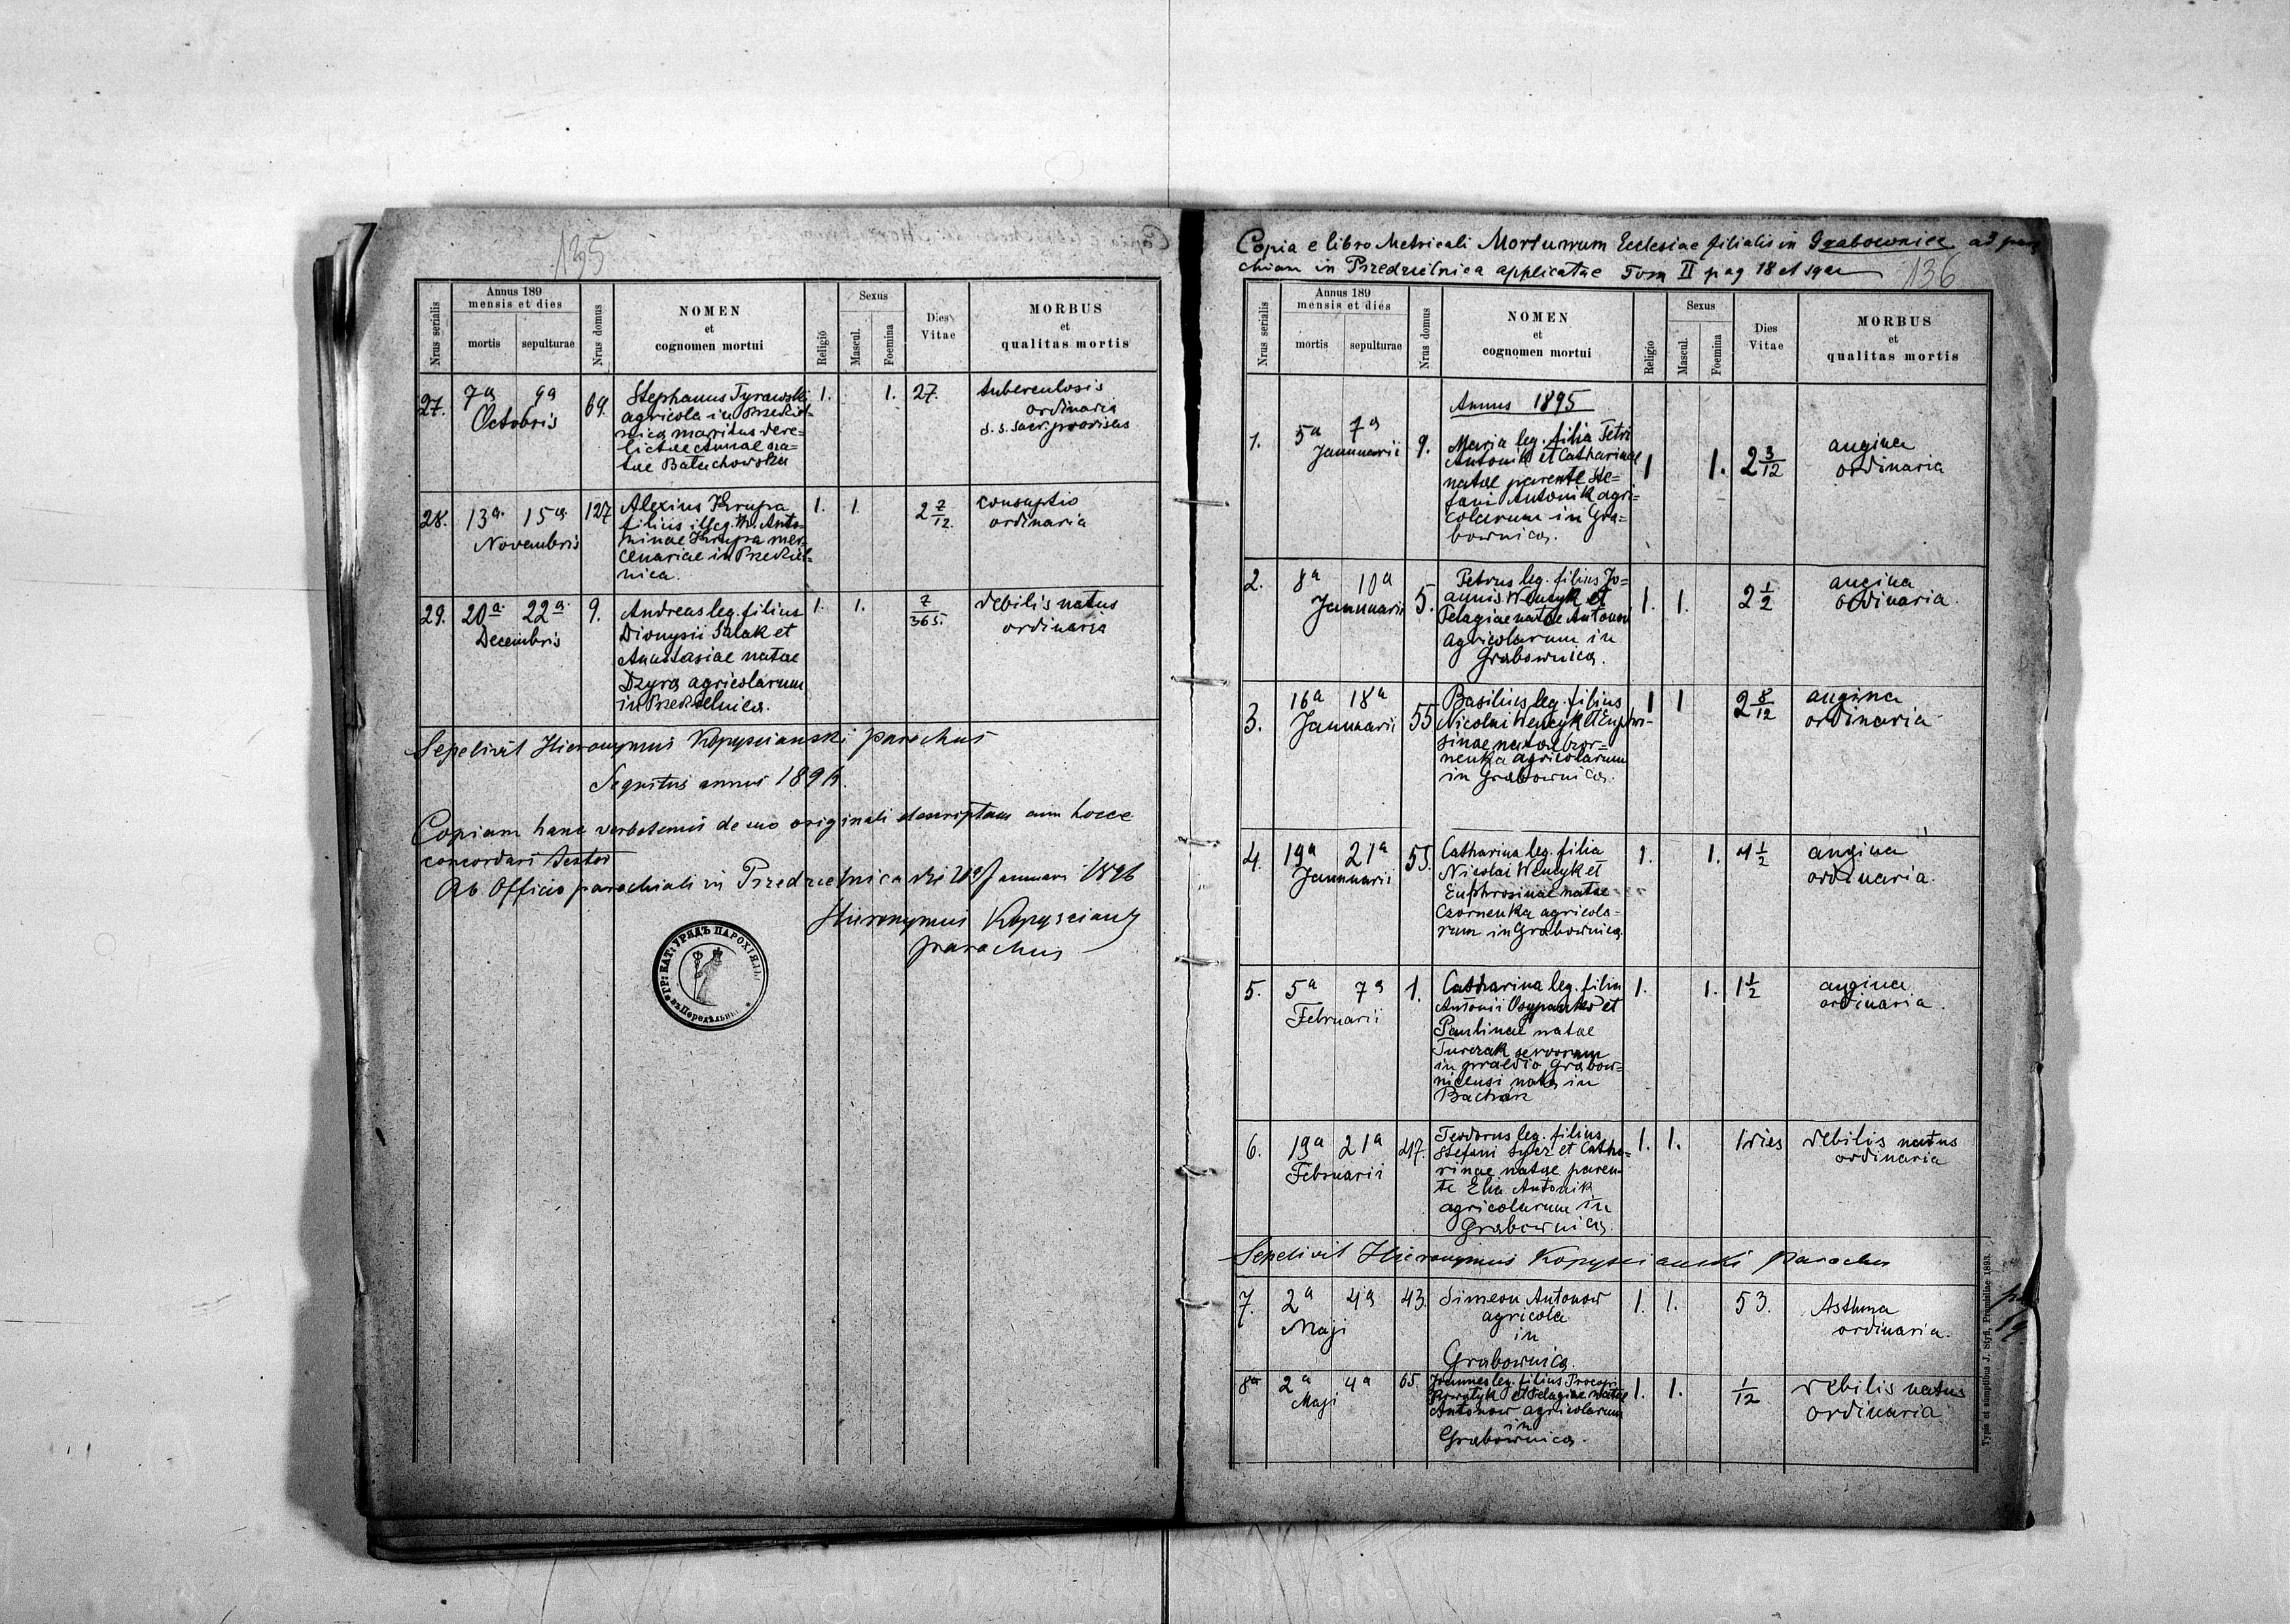 135
Nrus serialis
Annus 189
mensis et dies
mortis
sepulturae
Nrus domus
NOMEN
et
cognomen mortui
Religio
Sexus
Mascul.
Foemina
Dies
Vitae
MORBUS
et
qualitas mortis
27.
7a 9a
Octobris
69.
Stephanus Tyrawski
agricola in Przedziel-
nica maritus dere-
lictae Annae na-
tae Batuchowska
1.
1.
27.
tuberculosis
ordinaria
s. s. sacr. provisus
28.
13a 15a
Novembris
127
Alexius Krupa
filius illeg. Anto-
ninae Krupa mer-
cenariae in Przedziel-
nica.
1.
1.
2 7/12
consuptio
ordinaria
29.
20a 22a
Decembris
9.
Andreas leg. filius
Dionysii Salak et
Anastasiae natae
Dzyra agricolarum
in Przedzielnica.
1.
1.
7/365.
debilis natus
ordinaria
Sepelivit Hieronymus Kopyscianski parochus
Sequitur annus 1896.
Copiam hanc verbotenus de suo originali descriptam cum hocce
concordari testor
Ab Officio parochiali in Przedzielnica die Januari 1896
Hieronymus Kopyscianski
parochus
ГР: КАТ: УРЯДЪ ПАРОХІЯЛ.
Передѣльни
Copia e libro Metricali Mortuorum Ecclesiae filialis in Grabownica ad paro
chiam in Przedzielnica applicatae Tom II pag 18 et sque
136
Nrus serialis
Annus 189
mensis et dies
mortis
sepulturae
Nrus domus
NOMEN
et
cognomen mortui
Religio
Sexus
Mascul.
Foemina
Dies
Vitae
MORBUS
et
qualitas mortis
Annus 1895
1.
5a 7a
Januuarii
9.
Maria leg. filia Petri
Antonik et Catharinae
natae parente Ste-
fani Antonik agri-
colarum in Gra-
bownica.
1
1.
2 3/12
angina
ordinaria
2.
8a 10a
Januuarii
5.
Petrus leg. filius Jo-
annis Wencyk et
Pelagiae natae Antonow
agricolarum in
Grabownica.
1.
1.
2 1/2
angina
ordinaria.
3.
16a 18a
Januuarii
55
Basilius leg. filius
Nicolai Wencyk et Euphro-
sinae natae Czor-
nenka agricolarum
in Grabownica.
1
1
2 8/12
angina
ordinaria
4.
19a 21a
Januuarii
55.
Catharina leg. filia
Nicolai Wencyk et
Euphrosinae natae
Czornenka agricola-
rum in Grabownica
1.
1.
4 1/2
angina
ordinaria.
5.
5a 7a
Februarii
1.
Catharina leg. filia
Antonii Osypanko et
Paulinae natae
Turczak servorum
in praedio Grabow-
nicensi nata in
Bachów
1.
1.
1 1/2
angina
ordinaria.
6.
19a 21a
Februarii
47.
Teodorus leg. filius
Stefani Sycz et Catha-
rinae natae paren-
te Elia Antonik
agricolarum in
Grabownica.
1.
1.
1 dies
debilis natus
ordinaria
Sepelivit Hieronymus Kopyscianski parochus
7.
2a 4a
Maji
43.
Simeon Antonow
agricola
in
Grabownica.
1.
1.
53.
Asthma
ordinaria.
8a
2a 4a
Maji
65.
Joannes leg. filius Procopi
et Pelagiae natae
Antonow agricolarum
in
Grabownica.
1.
1.
1/12
debilis natus
ordinaria
Typis et sumptibus J. Styfi, Premisliae 1893.